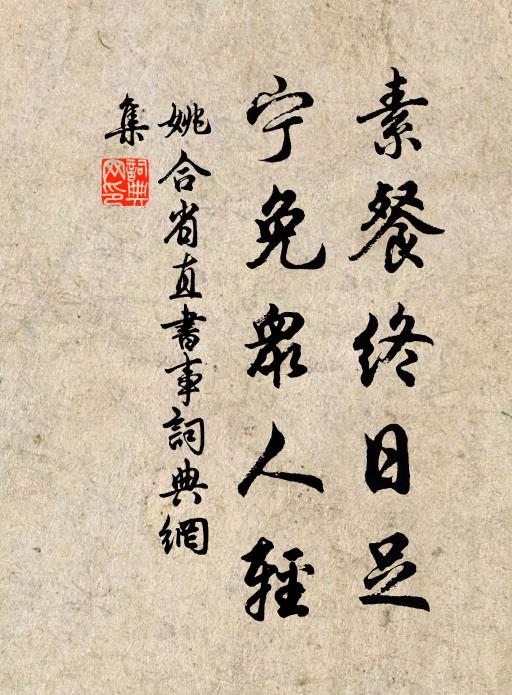 素餐終日足
宁免眾人輕
姚合省直書事詞典網
集
詞典網印